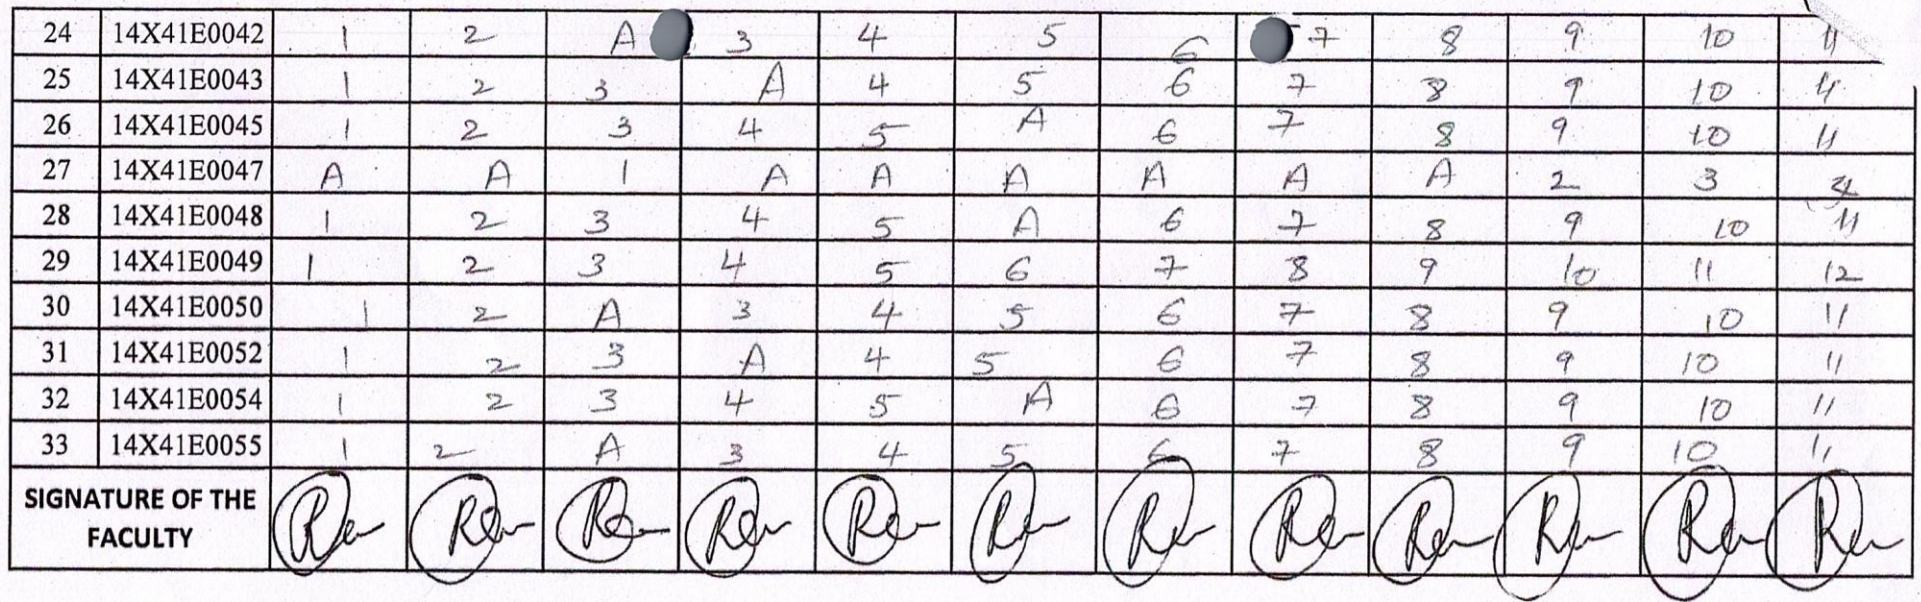 24 14X41E0042 1 2 A 3 4 5 6 7 8 9 10 11
25 14X41E0043 1 2 3 A 4 5 6 7 8 9 10 11
26 14X41E0045 1 2 3 4 5 A 6 7 8 9 10 11
27 14X41E0047 A A 1 A A A A A A 2 3 4
28 14X41E0048 1 2 3 4 5 A 6 7 8 9 10 11
29 14X41E0049 1 2 3 4 5 6 7 8 9 10 11 12
30 14X41E0050 1 2 A 3 4 5 6 7 8 9 10 11
31 14X41E0052 1 2 3 A 4 5 6 7 8 9 10 11
32 14X41E0054 1 2 3 4 5 A 6 7 8 9 10 11
33 14X41E0055 1 2 A 3 4 5 6 7 8 9 10 11
SIGNATURE OF THE
FACULTY